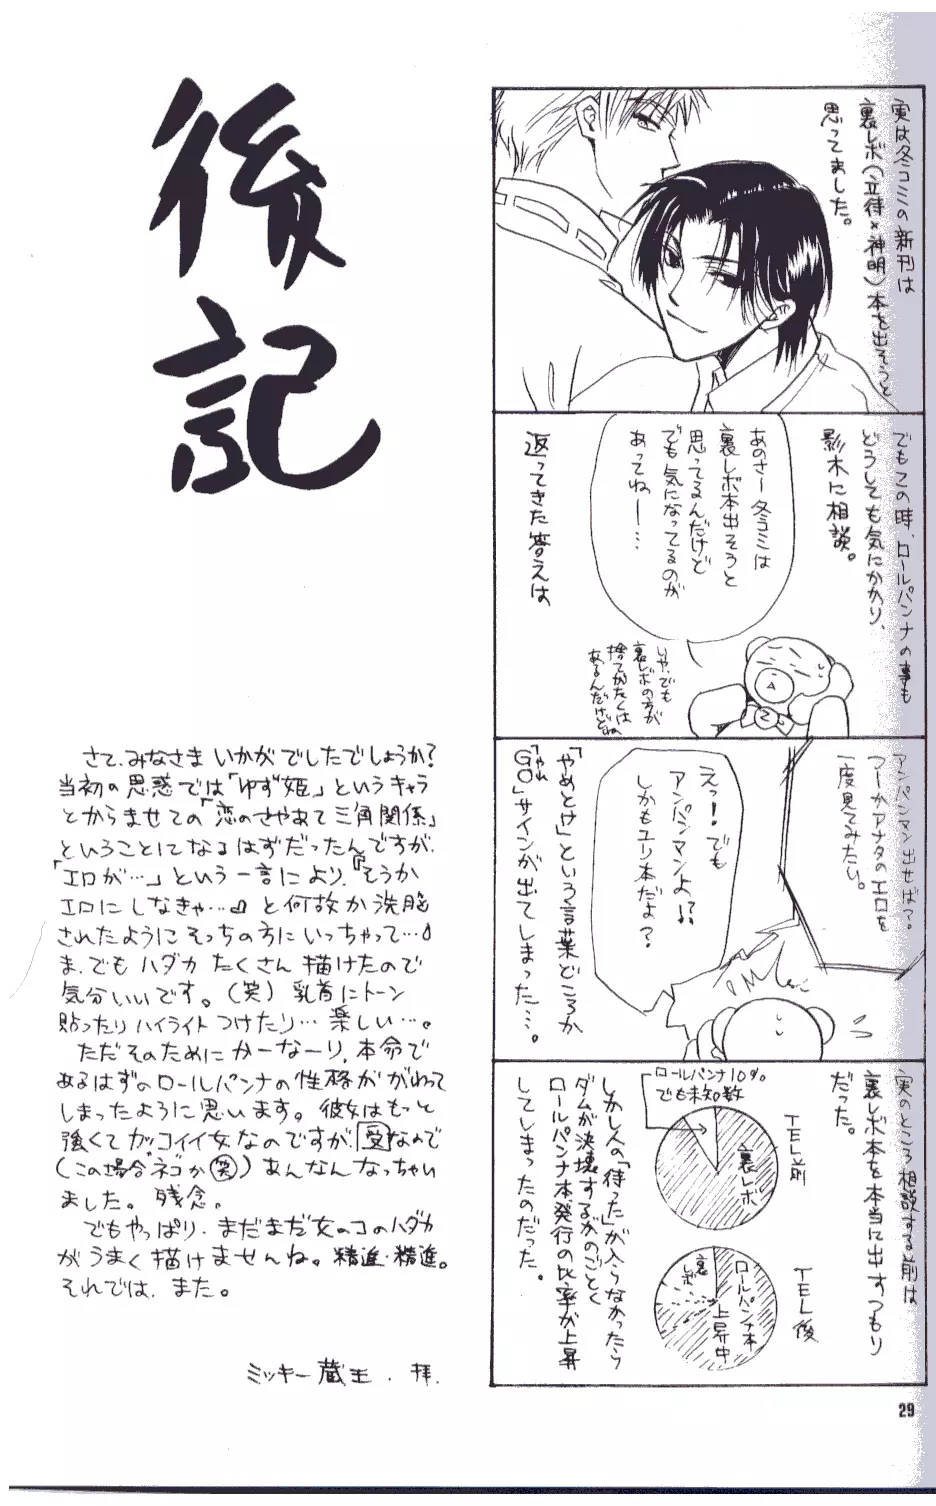 後記
実は冬コミの新刊は
裏レボ(立待×神明)本を出そうと
思ってました。
でもこの時、ロールパンナの事も
どうしても気にかかり、
影木に相談。
あのさー冬コミは
裏レボ本出そうと
思ってるんだけど
でも気になってるのが
あってねー…
いや、でも
裏レボの方が
捨てがたくは
あるんだけどね
返ってきた答えは
アンパンマン出せば?
つーかアナタのエロを
一度見てみたい。
えっ!でも
アンパンマンよ!?
しかもユリ本だよ?
「やめとけ」という言葉どころか
「やれ
GO」サインが出てしまった…。
実のところ相談する前は
裏レボ本を本当に出すつもり
だった。
TEL前
ロールパンナ10%
でも未知数
裏レボ
TEL後
裏レボ
ロールパンナ本
上昇中
しかし人の「待った」が入らなかったら
ダムが決壊するがのごとく
ロールパンナ本発行の比率が上昇
してしまったのだった。
さて、みなさま いかがでしたでしょうか?
当初の思惑では「ゆず姫」というキャラ
とからませての「恋のさやあて三角関係」
ということになるはずだったんですが、
「エロが…」という一言により、「そうか
エロにしなきゃ…」と何故か洗脳
されたようにそっちの方にいっちゃって…
ま、でもハダカたくさん描けたので
気分いいです。(笑) 乳首にトーン
貼ったりハイライトつけたり…楽しい…。
ただそのためにかーなーり、本命で
あるはずのロールパンナの性格がかわって
しまったように思います。彼女はもっと
強くてカッコイイ女なのですが、受なので
(この場合ネコか笑)あんなんなっちゃい
ました。残念。
でもやっぱり、まだまだ女のコのハダカ
がうまく描けませんね。精進・精進。
それでは、また。
ミッキー蔵王・拝.
29